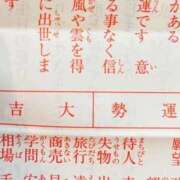 がある
運です 意
る事なく信
風や雲を得
に出世しま
す
運勢 大吉
願望
待人
失物
旅行
商売
学問
相場